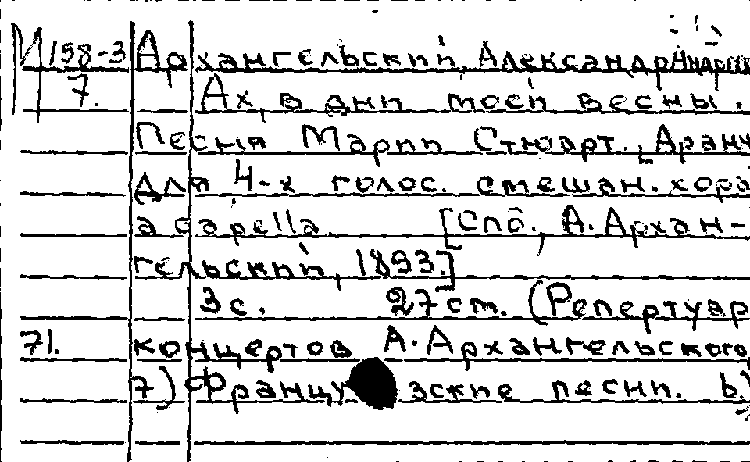 М 158-3 Архангельский, Александр Андрее
7. Ах, в дни моей весны.
Песня Марии Стюарт. [Аранж
для 4-х голос. смешан. хора
a capella. [Спб., А. Архан-
гельский, 1893.]
3 с. 27 см. (Репертуар
71. концертов А. Архангельского,
7) Французские песни. b)